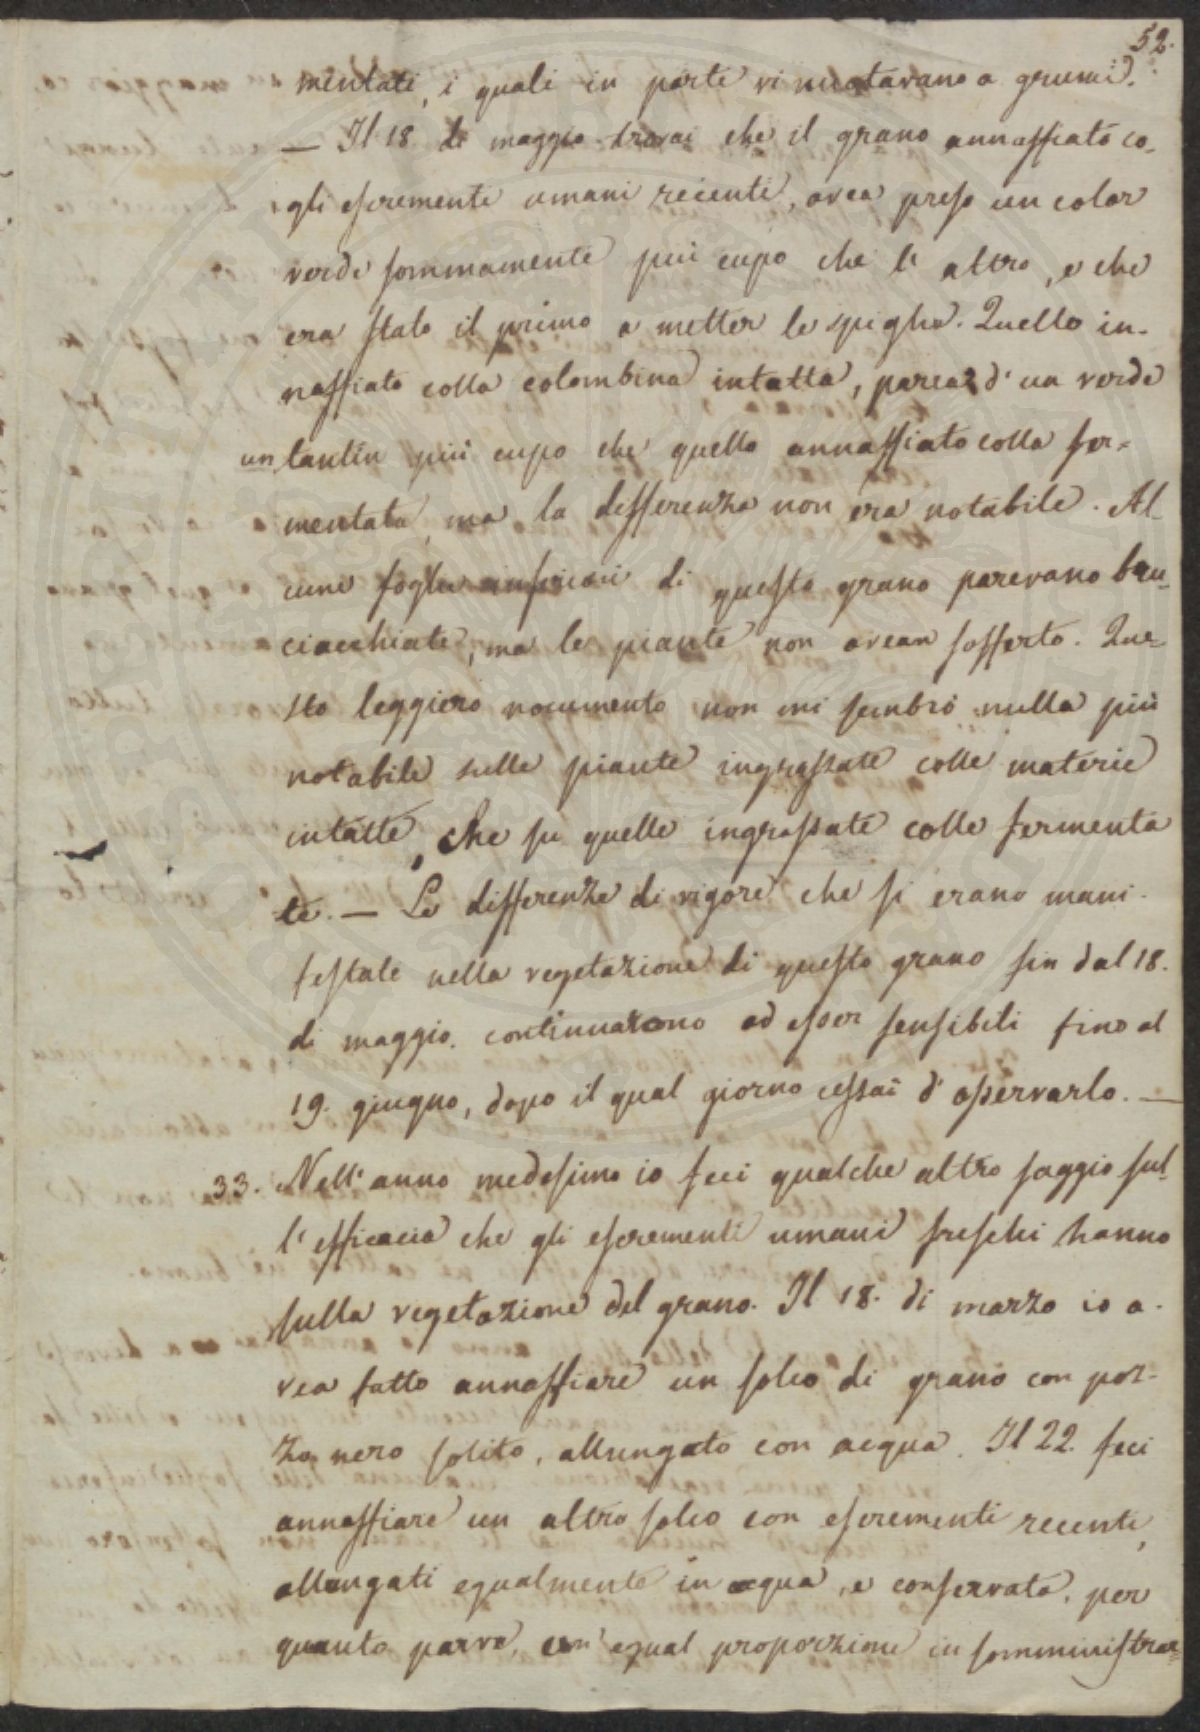 52.
mentati, i quali in parte vi nuotavano a grumi.
— Il 18 di maggio trovai che il grano annaffiato co-
gli escrementi umani recenti, avea preso un color
verde sommamente più cupo che l'altro, e che
era stato il primo a metter le spighe. Quello in-
naffiato colla colombina intatta, parea d'un verde
un tantin più cupo che quello annaffiato colla fer-
mentata, ma la differenza non era notabile. Al-
cune foglie inferiori di questo grano parevano bru-
ciacchiate, ma le piante non avean sofferto. Que-
sto leggiero nocumento non mi sembrò nulla più
notabile sulle piante ingrassate colle materie
intatte, che su quelle ingrassate colle fermenta
te. — Le differenze di vigore che si erano mani-
festate nella vegetazione di questo grano fin dal 18.
di maggio. continuarono ad esser sensibili fino al
19. giugno, dopo il qual giorno cessai d'osservarlo. —
33. Nell'anno medesimo io feci qualche altro saggio sul-
l'efficacia che gli escrementi umani freschi hanno
sulla vegetazione del grano. Il 18. di marzo io a-
vea fatto annaffiare un solco di grano con poz-
zo nero solito, allungato con acqua. Il 22. feci
annaffiare un altro solco con escrementi recenti,
allungati egualmente in acqua, e conservata, per
quanto parve, un' egual proporzione in somministrar=